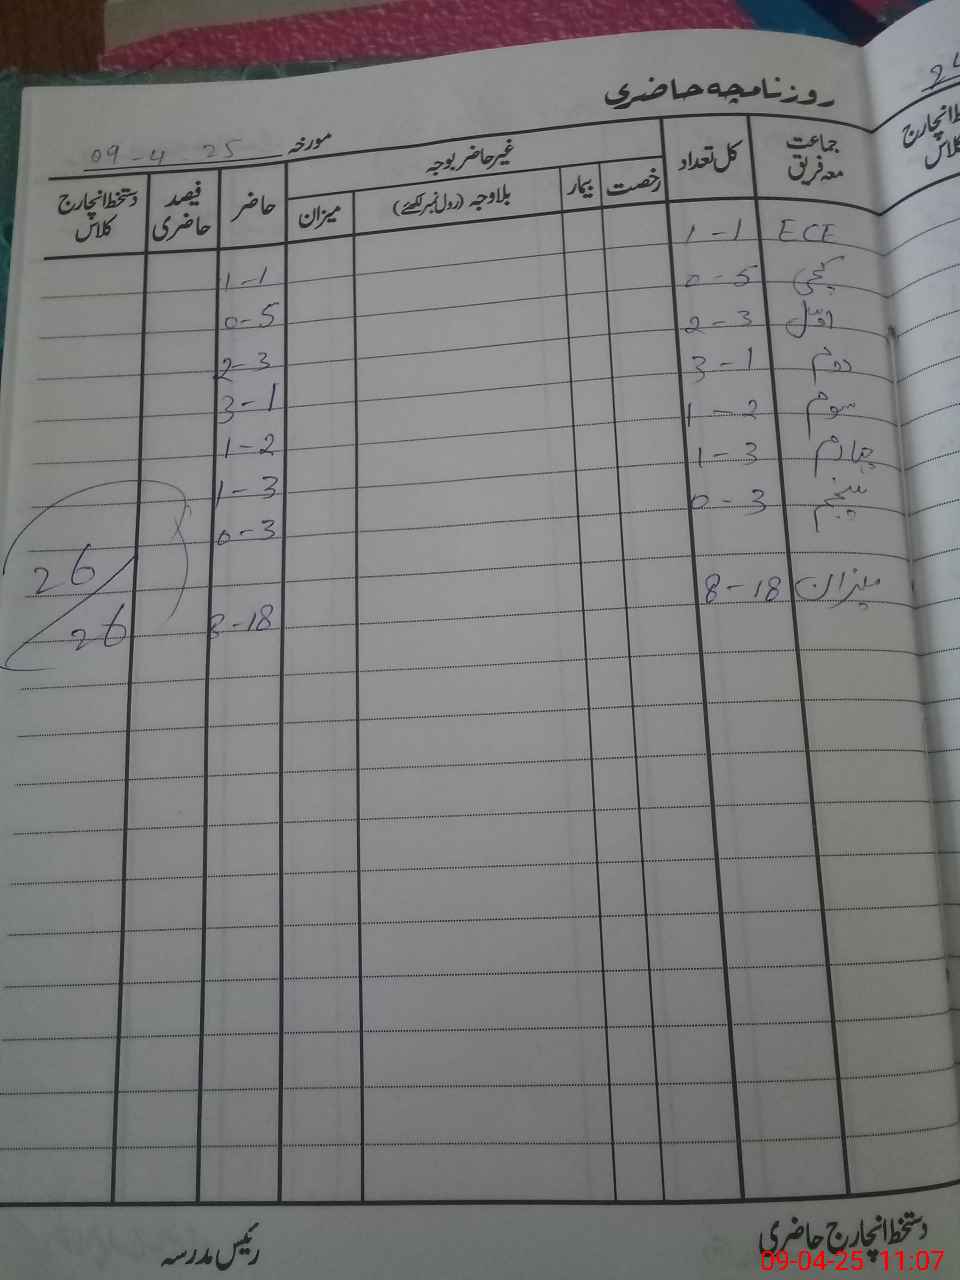 روزنامچہ حاضری
مورخہ 09-4-25
جماعت معہ فریق کل تعداد غیر حاضر بوجہ حاضر فیصد حاضری دستخط انچارج کلاس
رخصت بیمار بلاوجہ (رول نمبر لکھئے) میزان
ECE 1-1 1-1
کچی 0-5 0-5
اوّل 2-3 2-3
دوم 3-1 3-1
سوم 1-2 1-2
چہارم 1-3 1-3
پنجم 0-3 0-3
میزان 8-18 8-18
26/26
دستخط انچارج حاضری رئیس مدرسہ
09-04-25 11:07
24
انچارج
کلاس